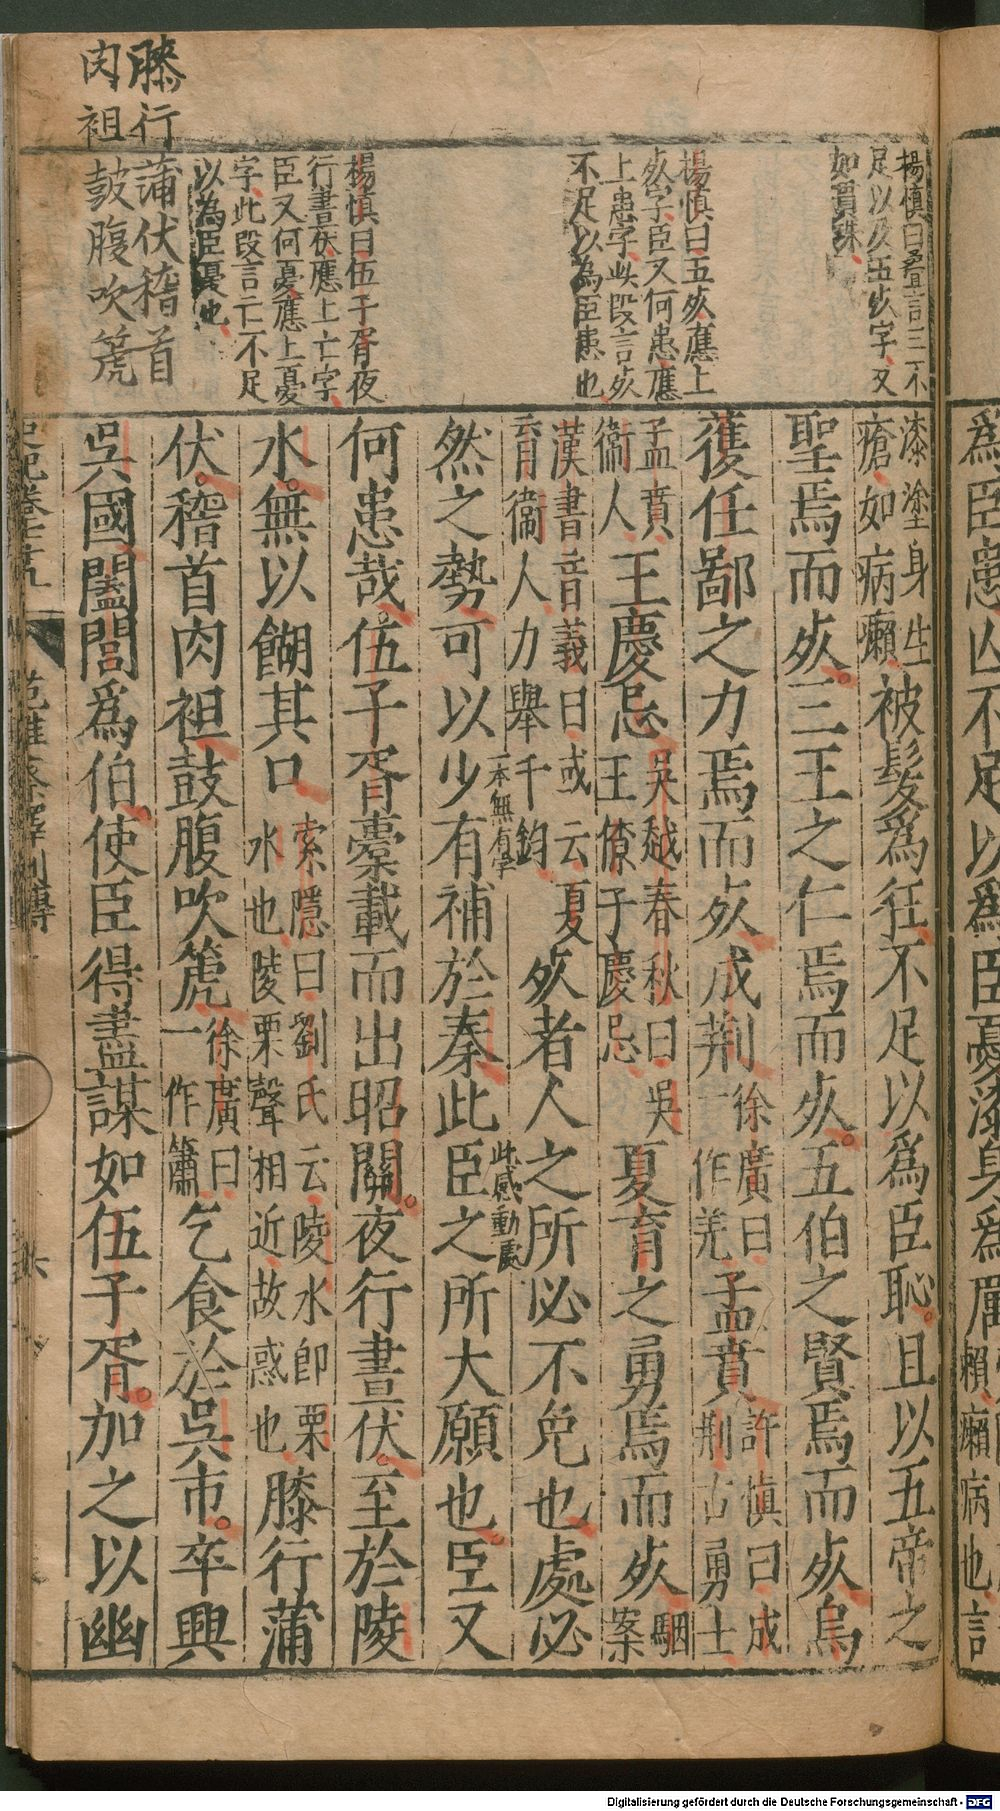 為臣患亾不足以為臣憂漆身為厲
賴癩病也言
漆塗身生
瘡如病癩
被髮為狂不足以為臣恥且以五帝之
聖焉而死三王之仁焉而死五伯之賢焉而死烏
獲任鄙之力焉而死成荆
徐廣曰
一作羌
孟賁
許慎曰成
荆古勇士
孟賁
衞人
王慶忌
吳越春秋曰吳
王僚子慶忌
夏育之勇焉而死
駰
案
漢書音義曰或云夏
育衞人力舉千鈞
死者人之所必不免也處必
然之勢可以少有補於秦此臣之所大願也臣又
一本無有字
此感動處
何患哉伍子胥橐載而出昭關夜行晝伏至於陵
水無以餬其口
索隱曰劉氏云陵水即栗
水也陵栗聲相近故惑也
膝行蒲
伏稽首肉袒鼓腹吹箎
徐廣曰
一作簫
乞食於吳市卒興
吳國闔閭為伯使臣得盡謀如伍子胥加之以幽
楊慎曰疊言三不
足以及五死字又
如貫珠
楊慎曰五死應上
死字臣又何患應
上患字此段言死
不足以為臣患也
楊慎曰伍子胥夜
行晝伏應上亡字
臣又何憂應上憂
字此段言亡不足
以為臣憂也
膝行
肉袒
蒲伏稽首
鼓腹吹箎
史記卷七十九
范雎蔡澤列傳
六
Digitalisierung gefördert durch die Deutsche Forschungsgemeinschaft - DFG